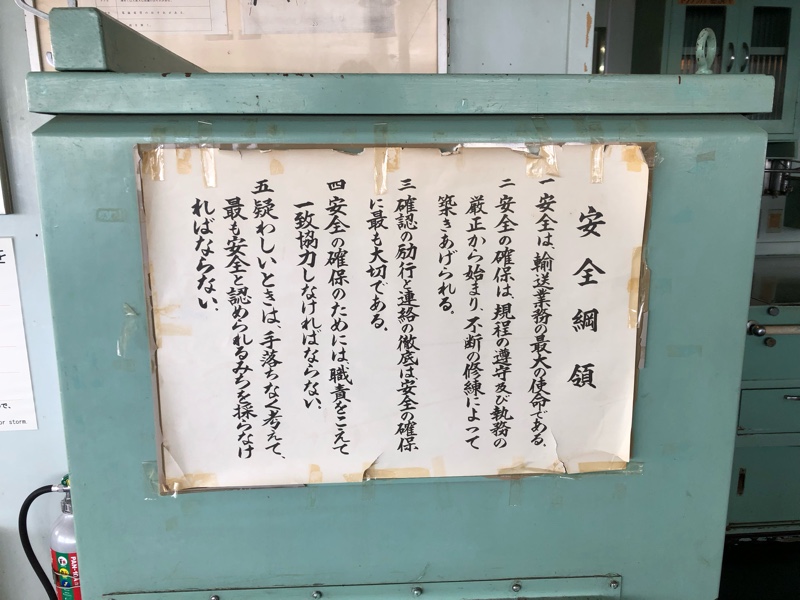 安全綱領
一 安全は、輸送業務の最大の使命である。
二 安全の確保は、規程の遵守及び執務の
厳正から始まり、不断の修練によって
築きあげられる。
三 確認の励行と連絡の徹底は安全の確保
に最も大切である。
四 安全の確保のためには、職責をこえて
一致協力しなければならない。
五 疑わしいときは、手落ちなく考えて、
最も安全と認められるみちを採らなけ
ればならない。
を
で、
or storm.